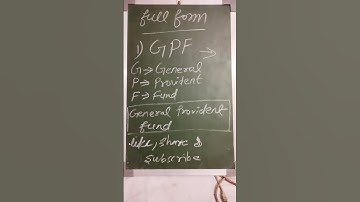 full form
1) GPF →
G → General
P → Provident
F → Fund
General Provident
fund
like, share &
subscribe